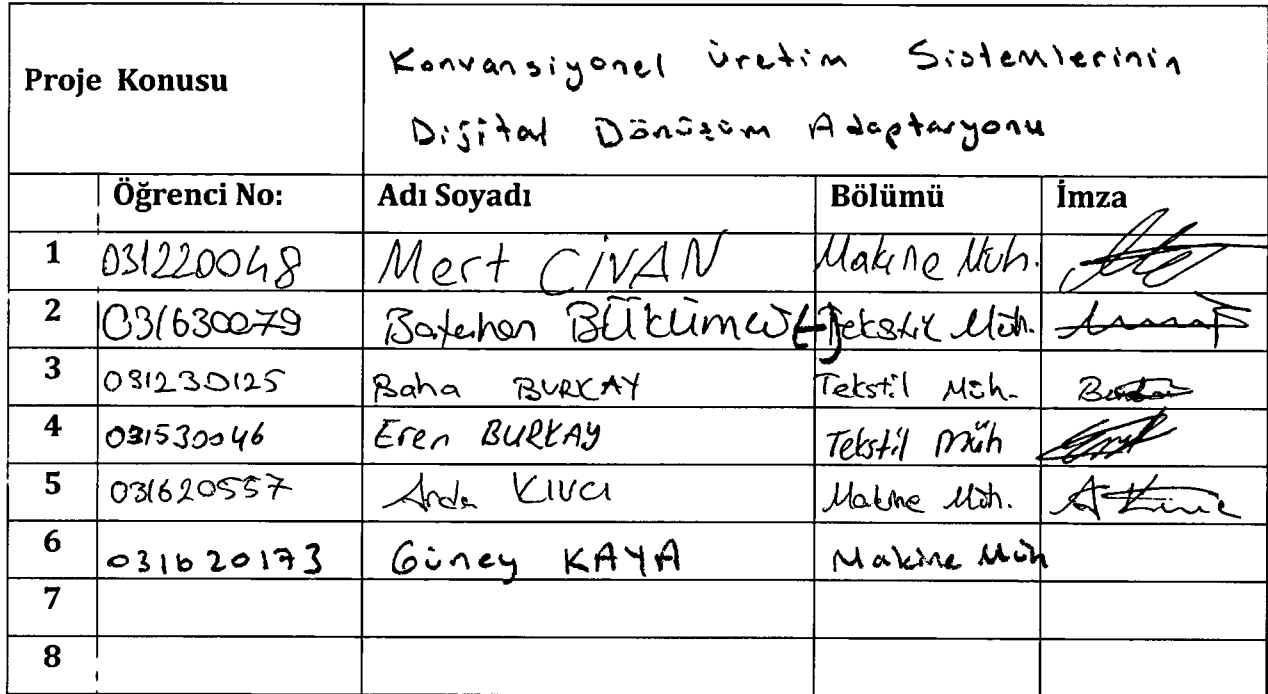 Proje Konusu
Konvansiyonel Üretim Sistemlerinin
Dijital Dönüşüm Adaptasyonu
Öğrenci No: Adı Soyadı Bölümü İmza
1 031220048 Mert CİVAN Makine Müh.
2 031630079 Batuhan Tekstil Müh.
3 031230125 Baha BURKAY Tekstil Müh.
4 031530046 Eren BURKAY Tekstil Müh
5 031620557 Arda KIVCI Makine Müh.
6 031620173 Güney KAYA Makine Müh
7
8